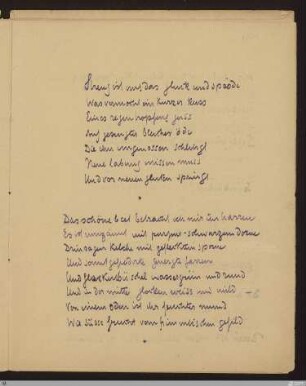 Streng ist uns das glück und spröde
Was vermocht ein kurzer kuss
Eines regentropfens guss
Auf gesengter bleicher öde
Die ihn ungenossen schlingt
Neue labung missen muss
Und vor neuen gluten springt

Das schöne beet betracht ich mir im harren
Es ist umzäunt mit purpurn-schwarzem dorne
Drin ragen kelche mit geflecktem sporne
Und sammtgefiederte geneigte farren
Und flockenbüschel wassergrün und rund
Und in der mitte glocken weiss und mild
Von einem odem ist ihr feuchter mund
Wie süsse frucht vom himmlischen gefild